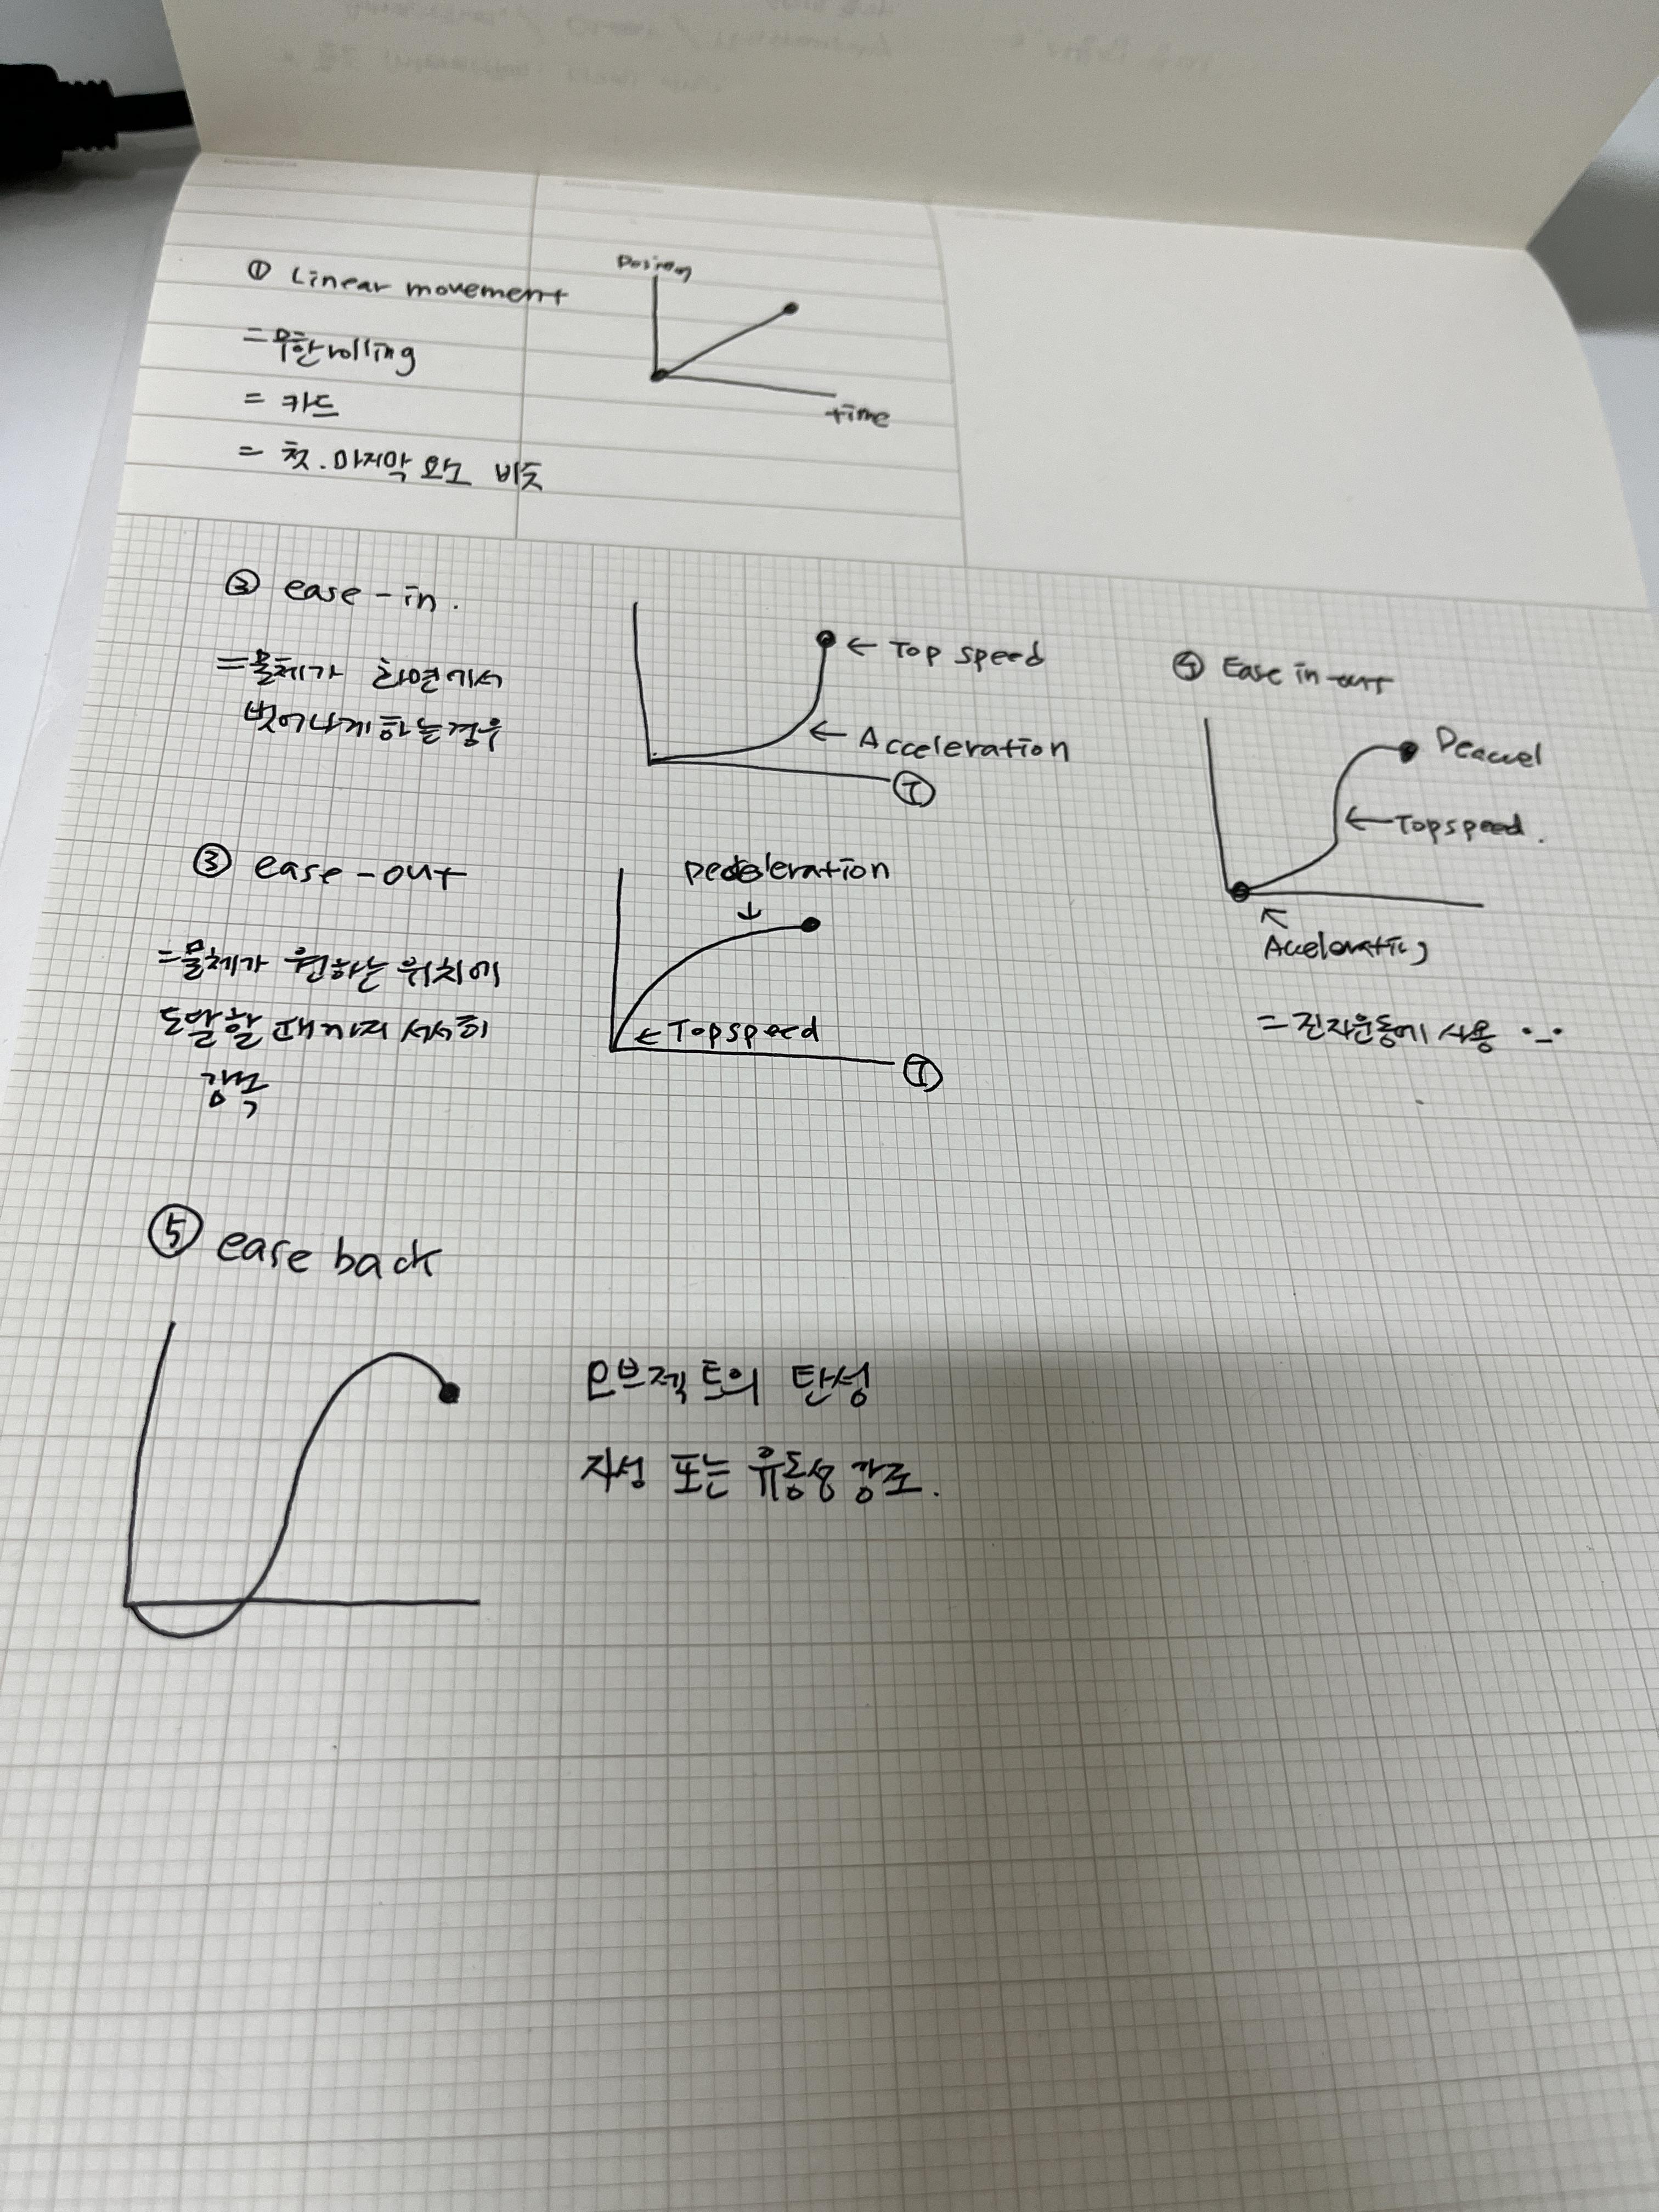 ① Linear movement
= 무한 rolling
= 카드
= 첫.마지막 요소 비슷
Position
time
② ease-in.
=물체가 화면에서
벗어나게 하는 경우
← Top speed
← Acceleration
T
③ ease-out
=물체가 원하는 위치에
도달할 때까지 서서히
감속
Deceleration
↓
← Top speed
T
④ Ease in-out
Deaccel
← Top speed.
↖
Accelerating
= 진자운동에 사용
⑤ ease back
오브젝트의 탄성
자성 또는 유동성 강조.